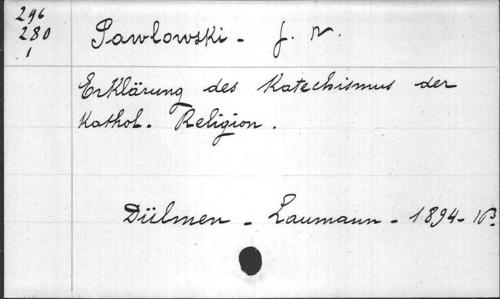 246
280
1
Pawlowski - J. N.
Erklärung des Katechismus der
Kathol. Religion.
Dülmen - Laumann - 1894 -